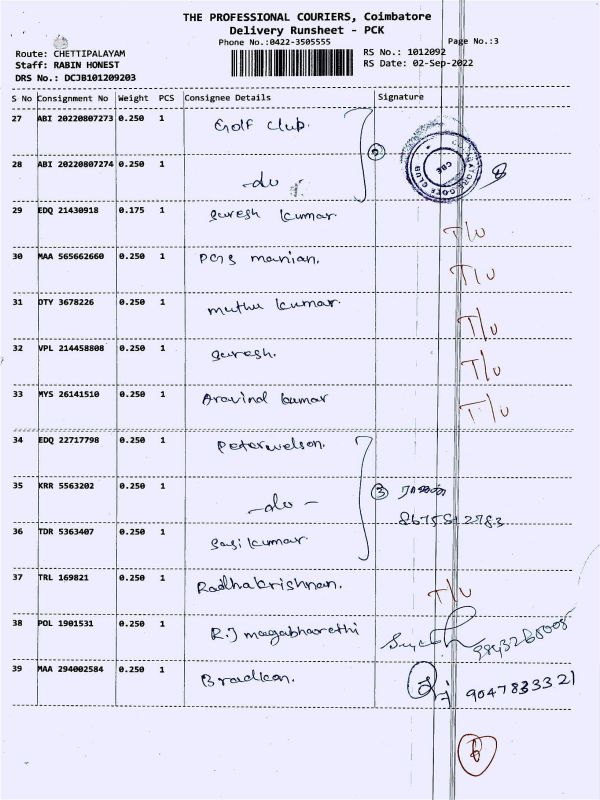 THE PROFESSIONAL COURIERS, Coimbatore
Delivery Runsheet - PCK
Phone No.:0422-3505555
Page No.:3
Route: CHETTIPALAYAM
RS No.: 1012092
Staff: RABIN HONEST
RS Date: 02-Sep-2022
DRS No.: DCJB101209203
S No Consignment No Weight PCS Consignee Details Signature
27 ABI 20220807273 0.250 1 Golf Club.
28 ABI 20220807274 0.250 1 -do
②
COIMBATORE GOLF CLUB
CBE
29 EDQ 21430918 0.175 1 Suresh kumar T/U
30 MAA 565662660 0.250 1 PGS manian. T/U
31 DTY 3678226 0.250 1 muthu kumar. T/U
32 VPL 214458808 0.250 1 Suresh. T/U
33 MYS 26141510 0.250 1 Aravind kumar T/U
34 EDQ 22717798 0.250 1 Peterwelson.
35 KRR 5563202 0.250 1 -do-
③
36 TDR 5363407 0.250 1 Sasi kumar.
37 TRL 169821 0.250 1 Radhakrishnan. T/U
38 POL 1901531 0.250 1 R.J magabharethi
39 MAA 294002584 0.250 1 9047833321
6